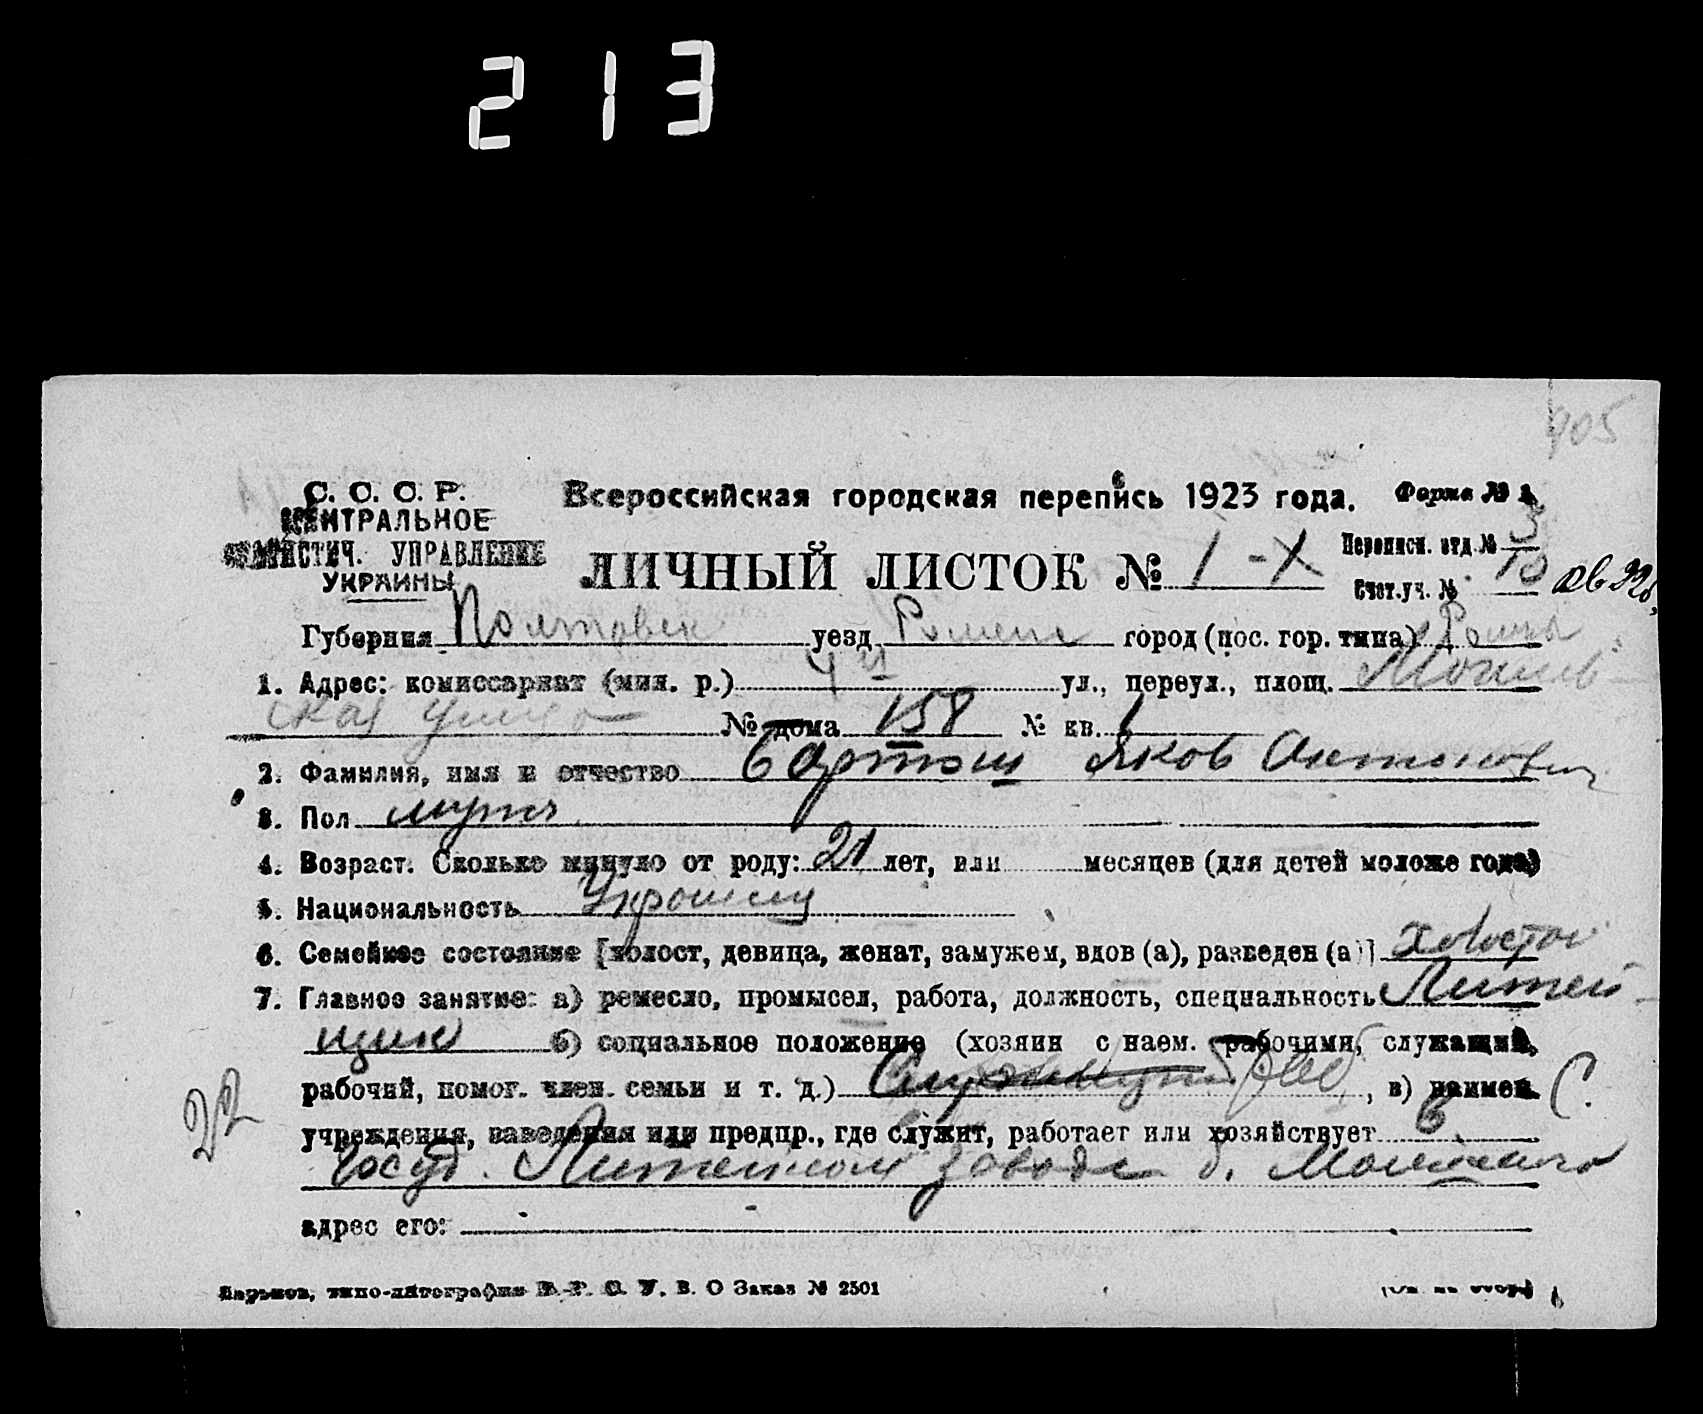 213
905
С. С. С. Р.
ЦЕНТРАЛЬНОЕ
СТАТИСТИЧ. УПРАВЛЕНИЕ
УКРАИНЫ
Всероссийская городская перепись 1923 года.
Форма № 1
ЛИЧНЫЙ ЛИСТОК № 1-X
Переписн. отд. № 3
Счет. уч. № 10
Губерния Полтавск уезд Роменс город (пос. гор. типа) Ромны
1. Адрес: комиссариат (мил. р.) 4й ул., переул., площ. Могилев-
ская улица № дома 158 № кв. 1
2. Фамилия, имя и отчество Бартош Яков Антонович
3. Пол мужч
4. Возраст. Сколько минуло от роду: 21 лет, или месяцев (для детей моложе года)
5. Национальность Украинец
6. Семейное состояние [холост, девица, женат, замужем, вдов (а), разведен (а)] холостой
7. Главное занятие: а) ремесло, промысел, работа, должность, специальность Литей-
щик б) социальное положение (хозяин с наем. рабочими, служащий,
рабочий, помог. член. семьи и т. д.) , в) наимен.
учреждения, заведения или предпр., где служит, работает или хозяйствует в
Госуд. Литейном заводе б.
адрес его:
Харьков, типо-литография В. У. В. О Заказ № 2501
22